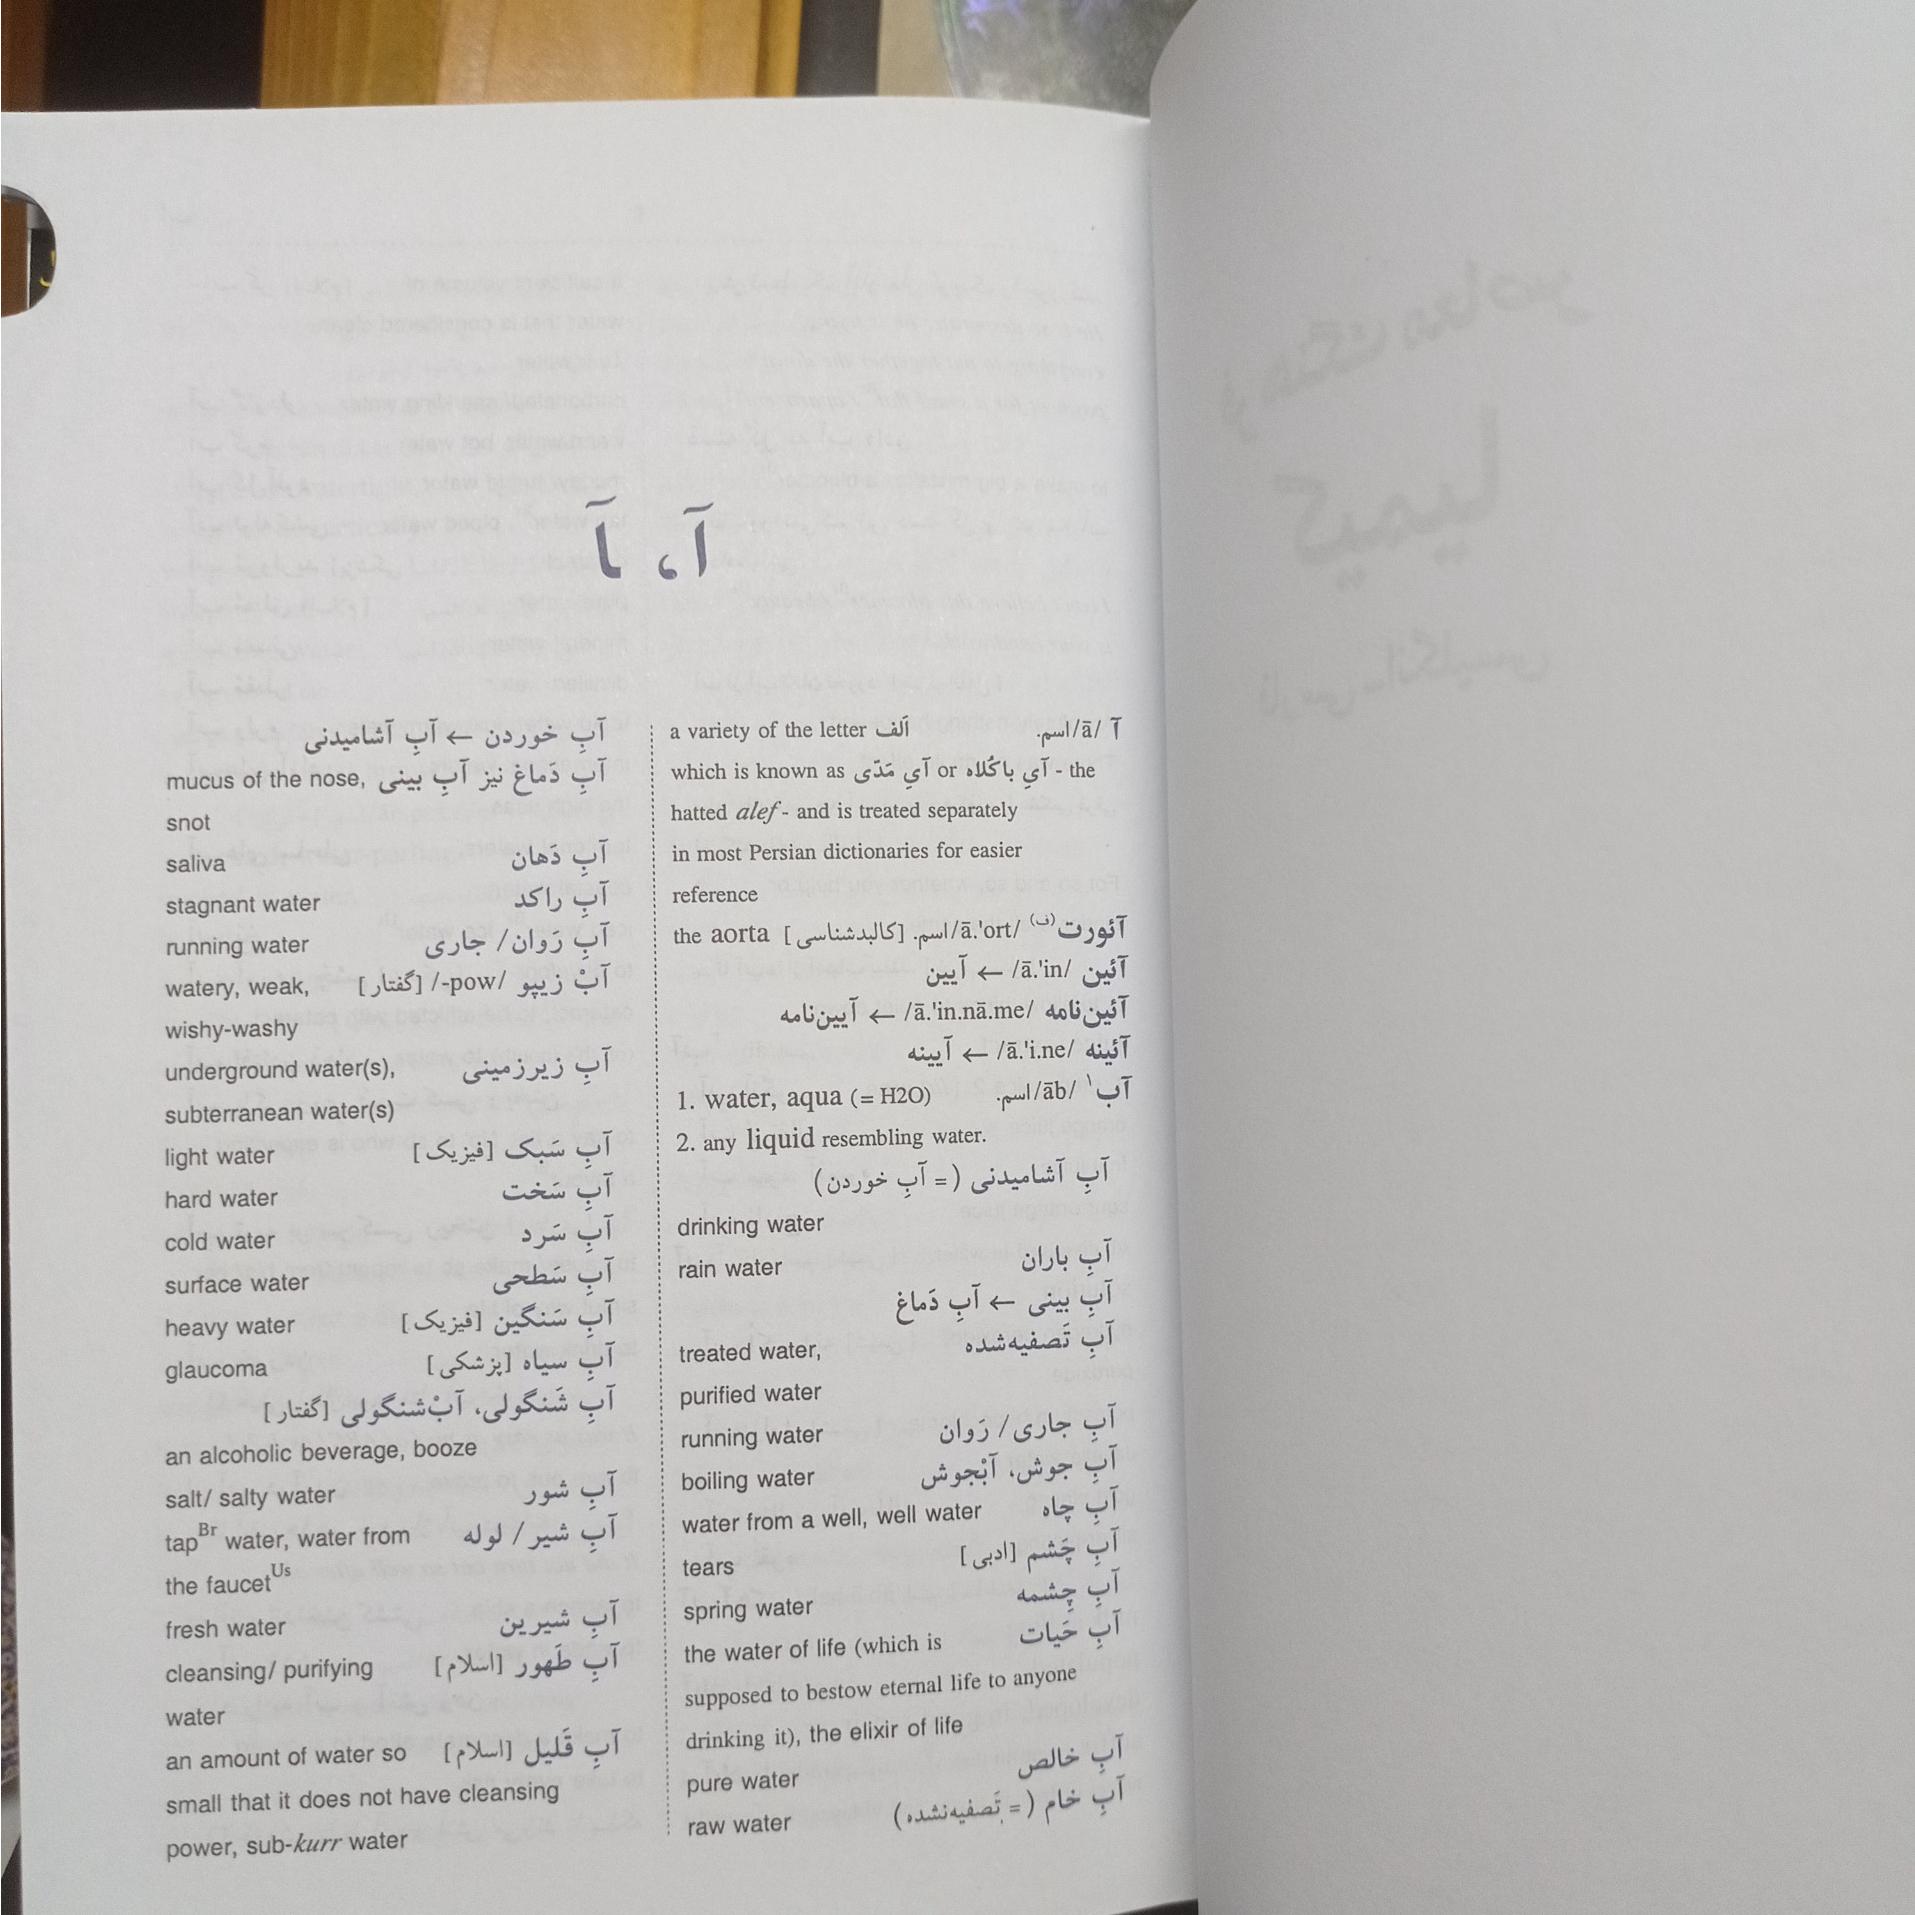 آ، ـآ
آ /ā/ اسم. a variety of the letter اَلف
which is known as آیِ مَدّی or آیِ باکُلاه - the
hatted alef - and is treated separately
in most Persian dictionaries for easier
reference
آئورت(ف) /ā.'ort/ اسم. [کالبدشناسی] the aorta
آئین /ā.'in/ ← آیین
آئین‌نامه /ā.'in.nā.me/ ← آیین‌نامه
آئینه /ā.'i.ne/ ← آیینه
آب۱ /āb/ اسم. 1. water, aqua (= H2O)
2. any liquid resembling water.
آبِ آشامیدنی (= آبِ خوردن)
drinking water
آبِ باران rain water
آبِ بینی ← آبِ دَماغ
آبِ تَصفیه‌شده treated water,
purified water
آبِ جاری/ رَوان running water
آبِ جوش، آبْجوش boiling water
آبِ چاه water from a well, well water
آبِ چَشم [ادبی] tears
آبِ چِشمه spring water
آبِ حَیات the water of life (which is
supposed to bestow eternal life to anyone
drinking it), the elixir of life
آبِ خالص pure water
آبِ خام (= تَصفیه‌نشده) raw water
آبِ خوردن ← آبِ آشامیدنی
آبِ دَماغ نیز آبِ بینی mucus of the nose,
snot
آبِ دَهان saliva
آبِ راکد stagnant water
آبِ رَوان/ جاری running water
آبْ زیپو /-pow/ [گفتار] watery, weak,
wishy-washy
آبِ زیرزمینی underground water(s),
subterranean water(s)
آبِ سَبک [فیزیک] light water
آبِ سَخت hard water
آبِ سَرد cold water
آبِ سَطحی surface water
آبِ سَنگین [فیزیک] heavy water
آبِ سیاه [پزشکی] glaucoma
آبِ شَنگولی، آبْ‌شنگولی [گفتار]
an alcoholic beverage, booze
آبِ شور salt/ salty water
آبِ شیر/ لوله tapBr water, water from
the faucetUs
آبِ شیرین fresh water
آبِ طَهور [اسلام] cleansing/ purifying
water
آبِ قَلیل [اسلام] an amount of water so
small that it does not have cleansing
power, sub-kurr water